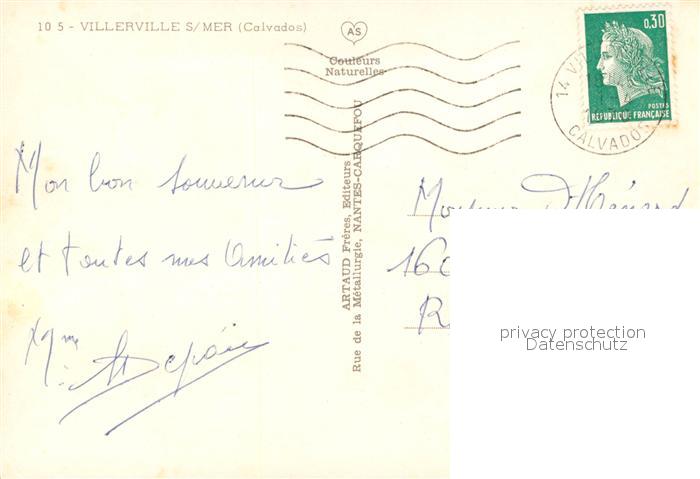 10 5 - VILLERVILLE S/MER (Calvados)
AS
Couleurs
Naturelles
0,30
POSTES
REPUBLIQUE FRANÇAISE
14 VI
CALVADOS
ARTAUD Frères, Editeurs
Rue de la Métallurgie, NANTES-CARQUEFOU
Mon bon souvenir
et toutes mes Amitiés
Mme
Monsieur Ménard
160
R
privacy protection
Datenschutz